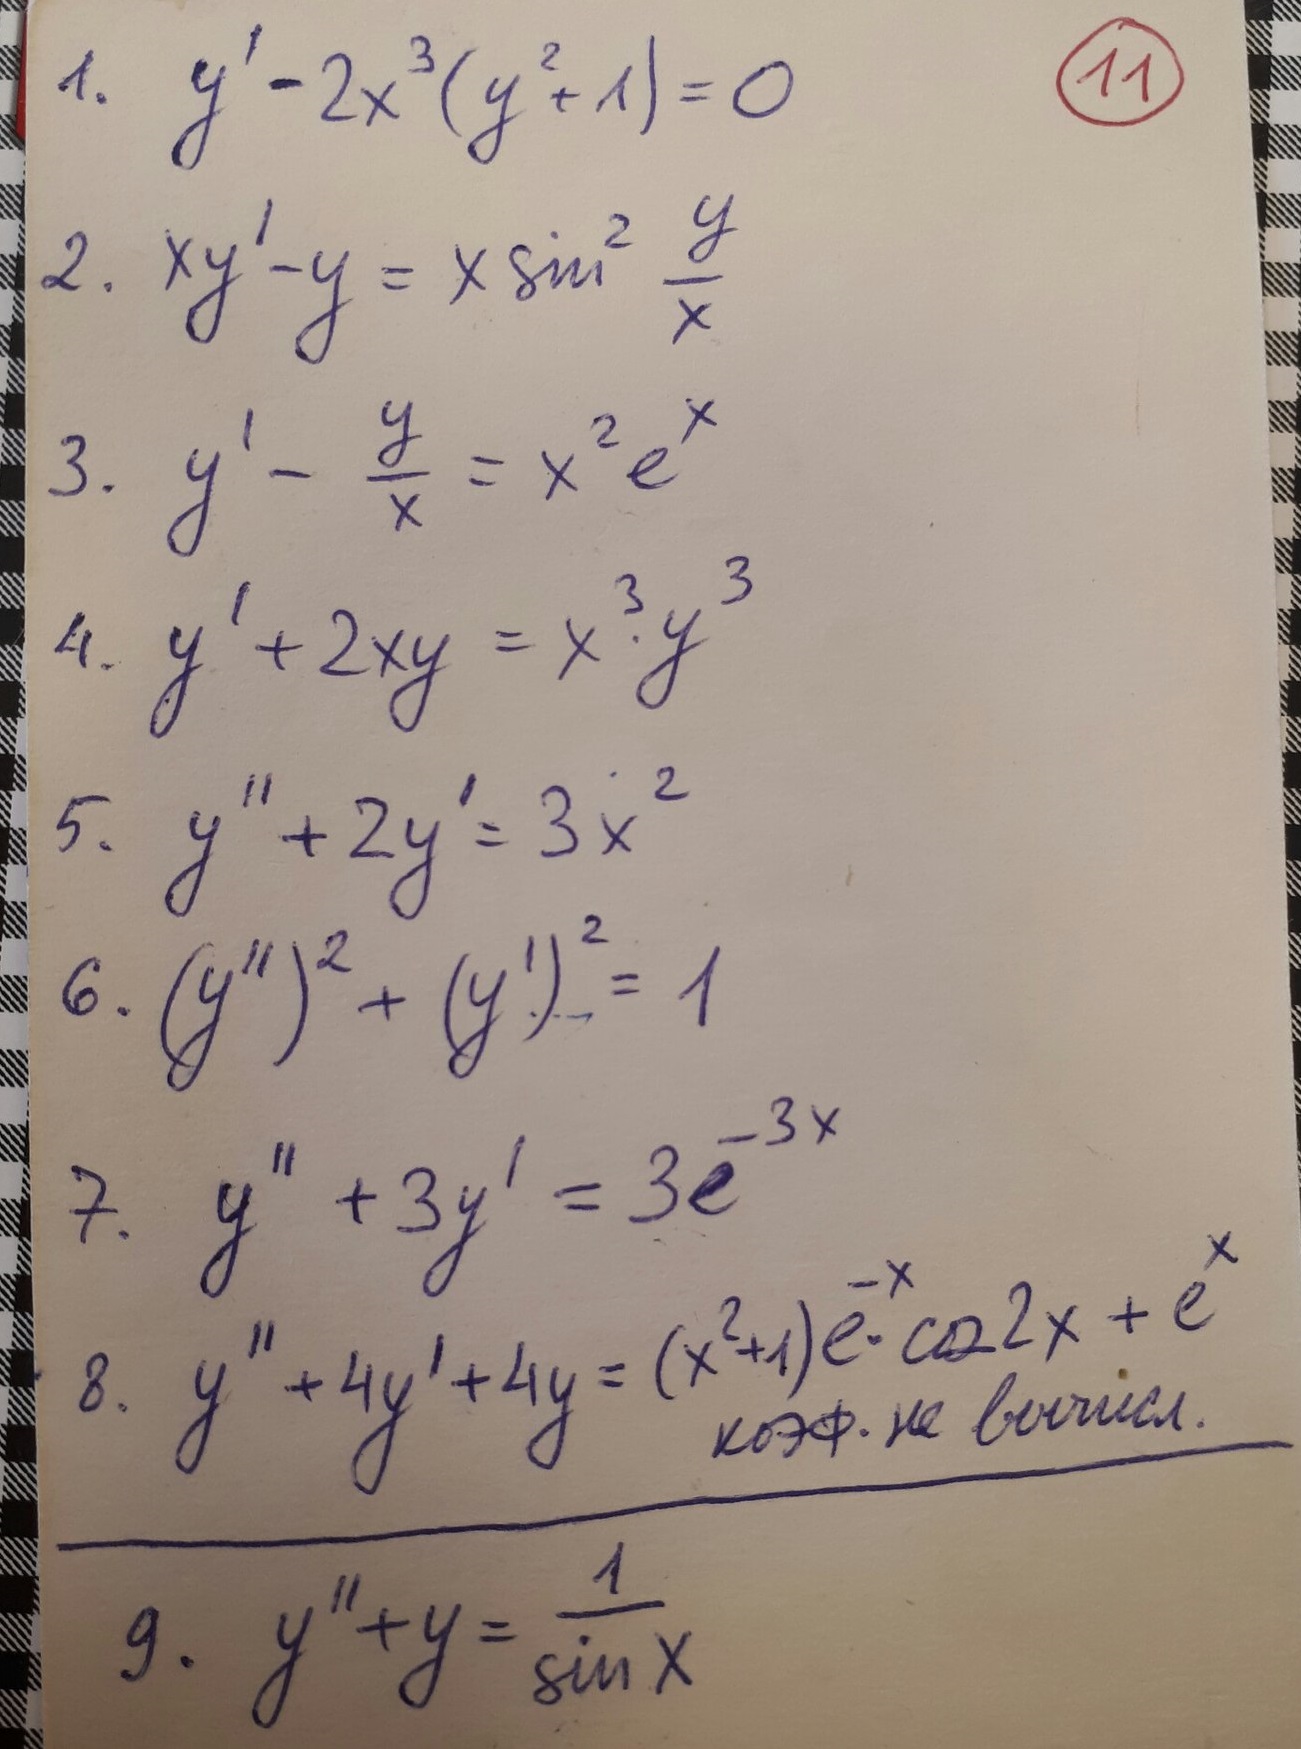 11
1. y' - 2x³(y² + 1) = 0
2. xy' - y = x sin² y/x
3. y' - y/x = x² eˣ
4. y' + 2xy = x³ · y³
5. y'' + 2y' = 3x²
6. (y'')² + (y')² = 1
7. y'' + 3y' = 3e⁻³ˣ
8. y'' + 4y' + 4y = (x² + 1) e⁻ˣ · cos 2x + eˣ
коэф. не вычисл.
9. y'' + y = 1/sin x